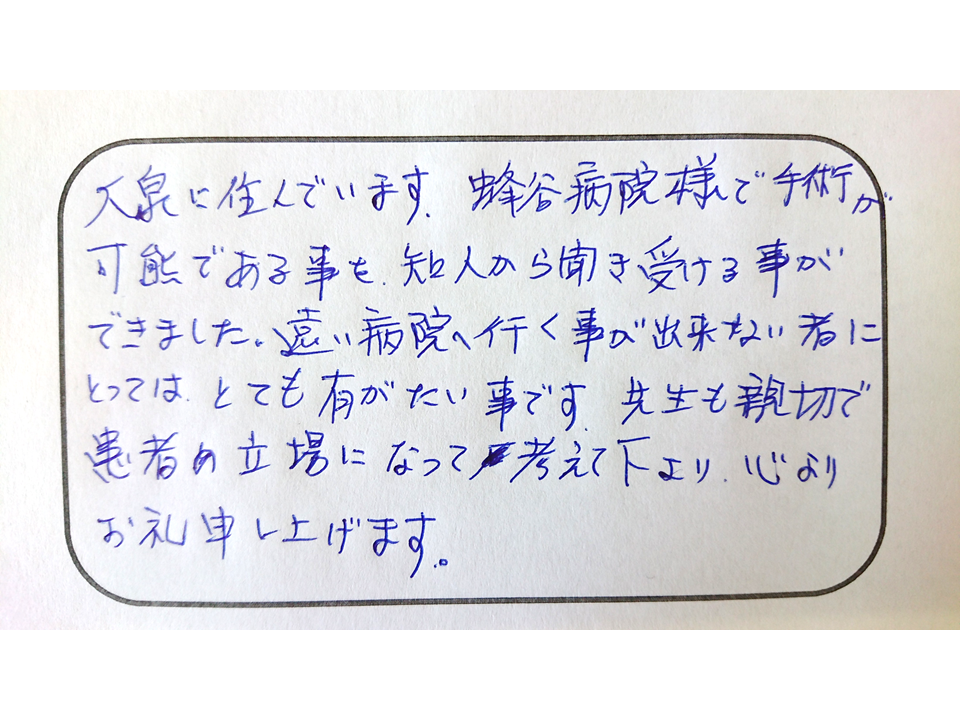 大泉に住んでいます。蜂谷病院様で手術が
可能である事を、知人から聞き受ける事が
できました。遠い病院へ行く事が出来ない者に
とっては、とても有がたい事です。先生も親切で
患者の立場になって考えて下より、心より
お礼申し上げます。